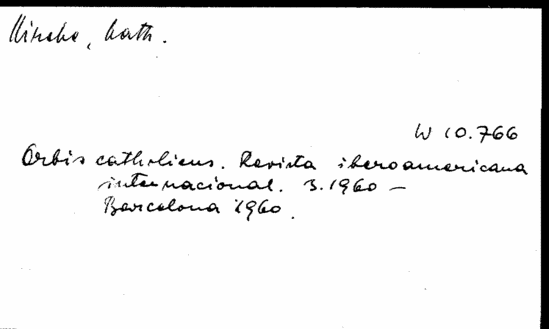 Kirche, kath.
W 10.766
Orbis catholicus. Revista iberoamericana
internacional. 3.1960 –
Barcelona 1960.